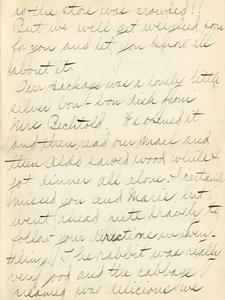 as the store was crowded!!
But we will get weighed soon
for you and let you know all
about it.
Our package was a lovely little
silver bon-bon dish from
Mrs. Bechtold. We opened it
and then read our mail and
then Aldo sawed wood while I
got dinner all alone. I certainly
missed you and Marie but
went ahead quite bravely to
follow your directions in every-
thing. The rabbit was really
very good and the cabbage
creamed was delicious. We